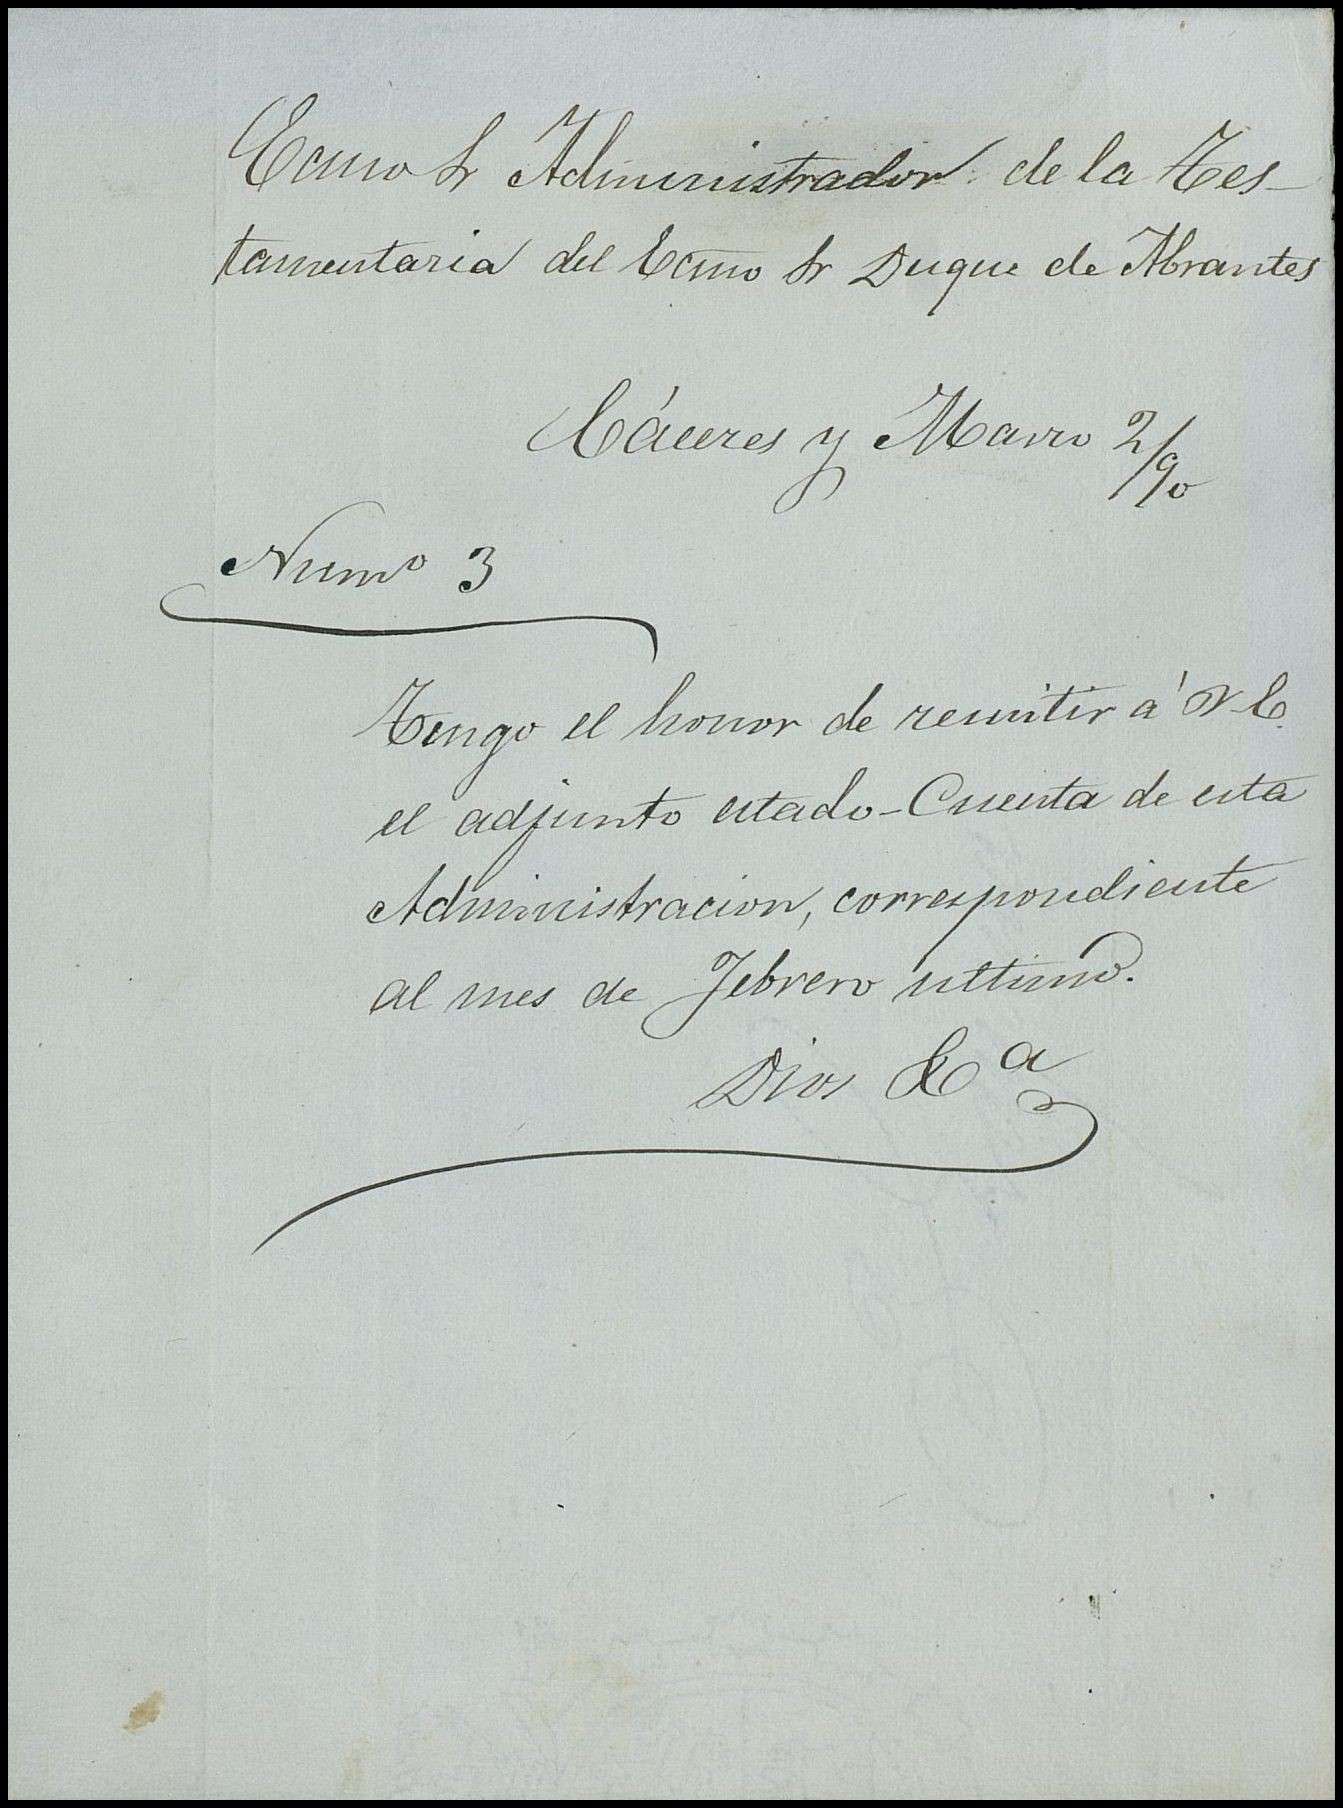 Ecmo Sr Administrador de la Tes-
tamentaria del Ecmo Sr Duque de Abrantes
Cáceres y Marzo 2/90
Numo 3
Tengo el honor de remitir á V. E.
el adjunto estado-Cuenta de esta
Administracion, correspondiente
al mes de Febrero ultimo.
Dios &a